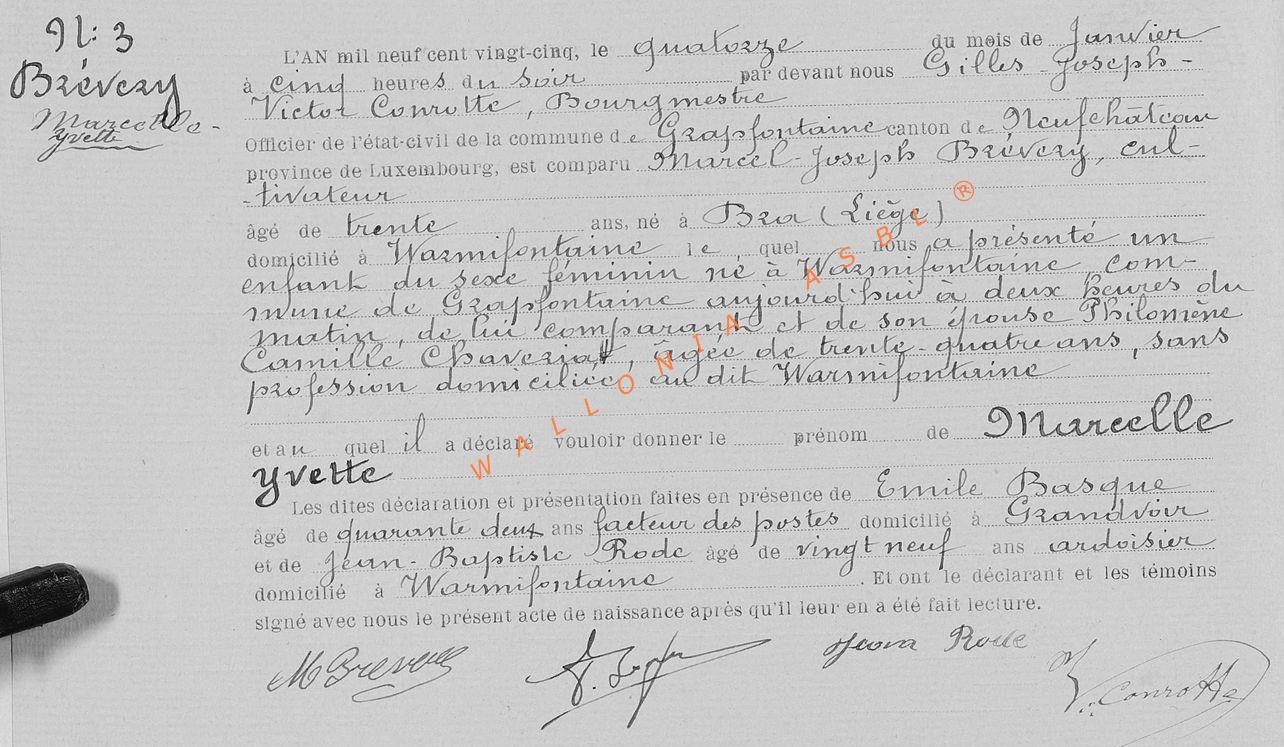 N: 3
Brévery
Marcelle-
Yvette
L'AN mil neuf cent vingt-cinq, le quatorze du mois de Janvier
à cinq heures du soir par devant nous Gilles-Joseph-
Victor Conrotte, Bourgmestre
Officier de l'état-civil de la commune de Grapfontaine canton de Neufchâteau
province de Luxembourg, est comparu Marcel-Joseph Brévery, cul-
-tivateur
âgé de trente ans, né à Bra (Liège)
domicilié à Warmifontaine le quel nous a présenté un
enfant du sexe féminin né à Warmifontaine, com-
mune de Grapfontaine aujourd'hui à deux heures du
matin, de lui comparant et de son épouse Philomène
Camille Chaveriat, âgée de trente-quatre ans, sans
profession domiciliée au dit Warmifontaine
et au quel il a déclaré vouloir donner le prénom de Marcelle
Yvette
Les dites déclaration et présentation faites en présence de Emile Basque
âgé de quarante deux ans facteur des postes domicilié à Grandvoir
et de Jean-Baptiste Rode âgé de vingt neuf ans ardoisier
domicilié à Warmifontaine. Et ont le déclarant et les témoins
signé avec nous le présent acte de naissance après qu'il leur en a été fait lecture.
M Brevery Rode V. Conrotte
WALLONIA ASBL ®